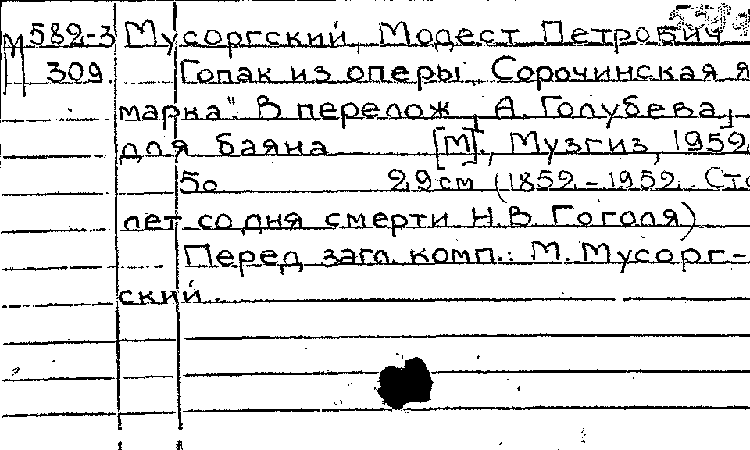 М 582-3 Мусоргский, Модест Петрович
309. Гопак из оперы „Сорочинская я
марка". В перелож[,] А. Голубева,
для баяна [М]., Музгиз, 1952
5с 29 см (1852-1952. Сто
лет со дня смерти Н.В. Гоголя)
Перед загл. комп.: М. Мусорг-
ский.